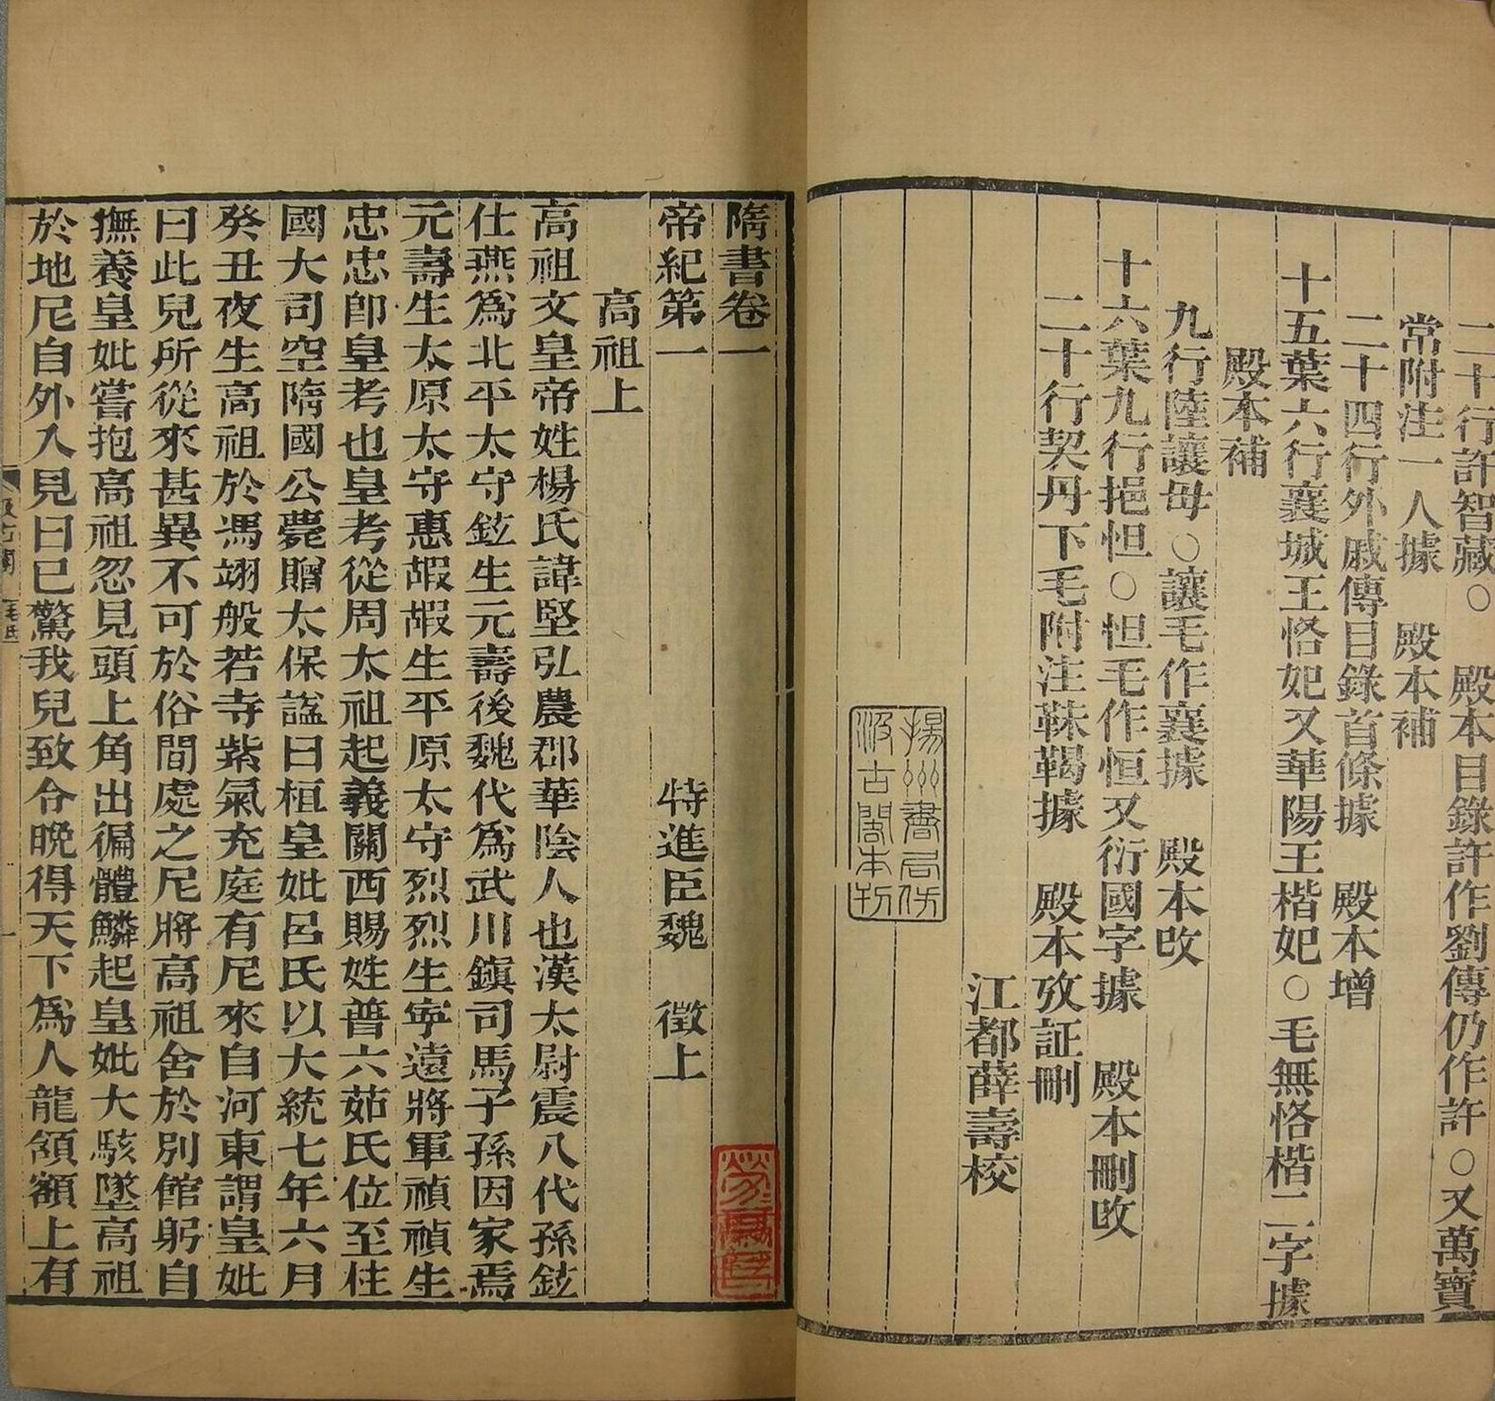 二十行許智藏○　殿本目錄許作劉傳仍作許○又萬寶
常附注一人據　殿本補
二十四行外戚傳目錄首條據　殿本增
十五葉六行襄城王恪妃又華陽王楷妃○毛無恪楷二字據
殿本補
九行陸讓母○讓毛作襄據　殿本改
十六葉九行挹怛○怛毛作恒又衍國字據　殿本刪改
二十行契丹下毛附注靺鞨據　殿本攷証刪
江都薛壽校
揚州書局仿
汲古閣本刊
隋書卷一
帝紀第一　特進臣魏　徵上
高祖上
高祖文皇帝姓楊氏諱堅弘農郡華陰人也漢太尉震八代孫鉉
仕燕爲北平太守鉉生元壽後魏代爲武川鎮司馬子孫因家焉
元壽生太原太守惠嘏嘏生平原太守烈烈生寧遠將軍禎禎生
忠忠卽皇考也皇考從周太祖起義關西賜姓普六茹氏位至柱
國大司空隋國公薨贈太保謚曰桓皇妣呂氏以大統七年六月
癸丑夜生高祖於馮翊般若寺紫氣充庭有尼來自河東謂皇妣
曰此兒所從來甚異不可於俗間處之尼將高祖舍於別館躬自
撫養皇妣嘗抱高祖忽見頭上角出徧體鱗起皇妣大駭墜高祖
於地尼自外入見曰已驚我兒致令晚得天下爲人龍頷額上有